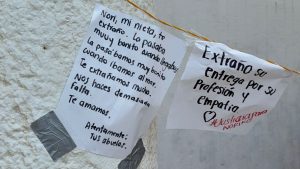 Nori, mi nieta, te
extraño. La pasaba
muy bonito cuando
La pasábamos muy bonito
cuando íbamos al mar.
Te extrañamos mucho.
Nos haces demasiada
falta.
Te amamos.
Atentamente:
Tus abuelos.
Extraño su
entrega por su
Profesión y
Empatía
#Justiciapara